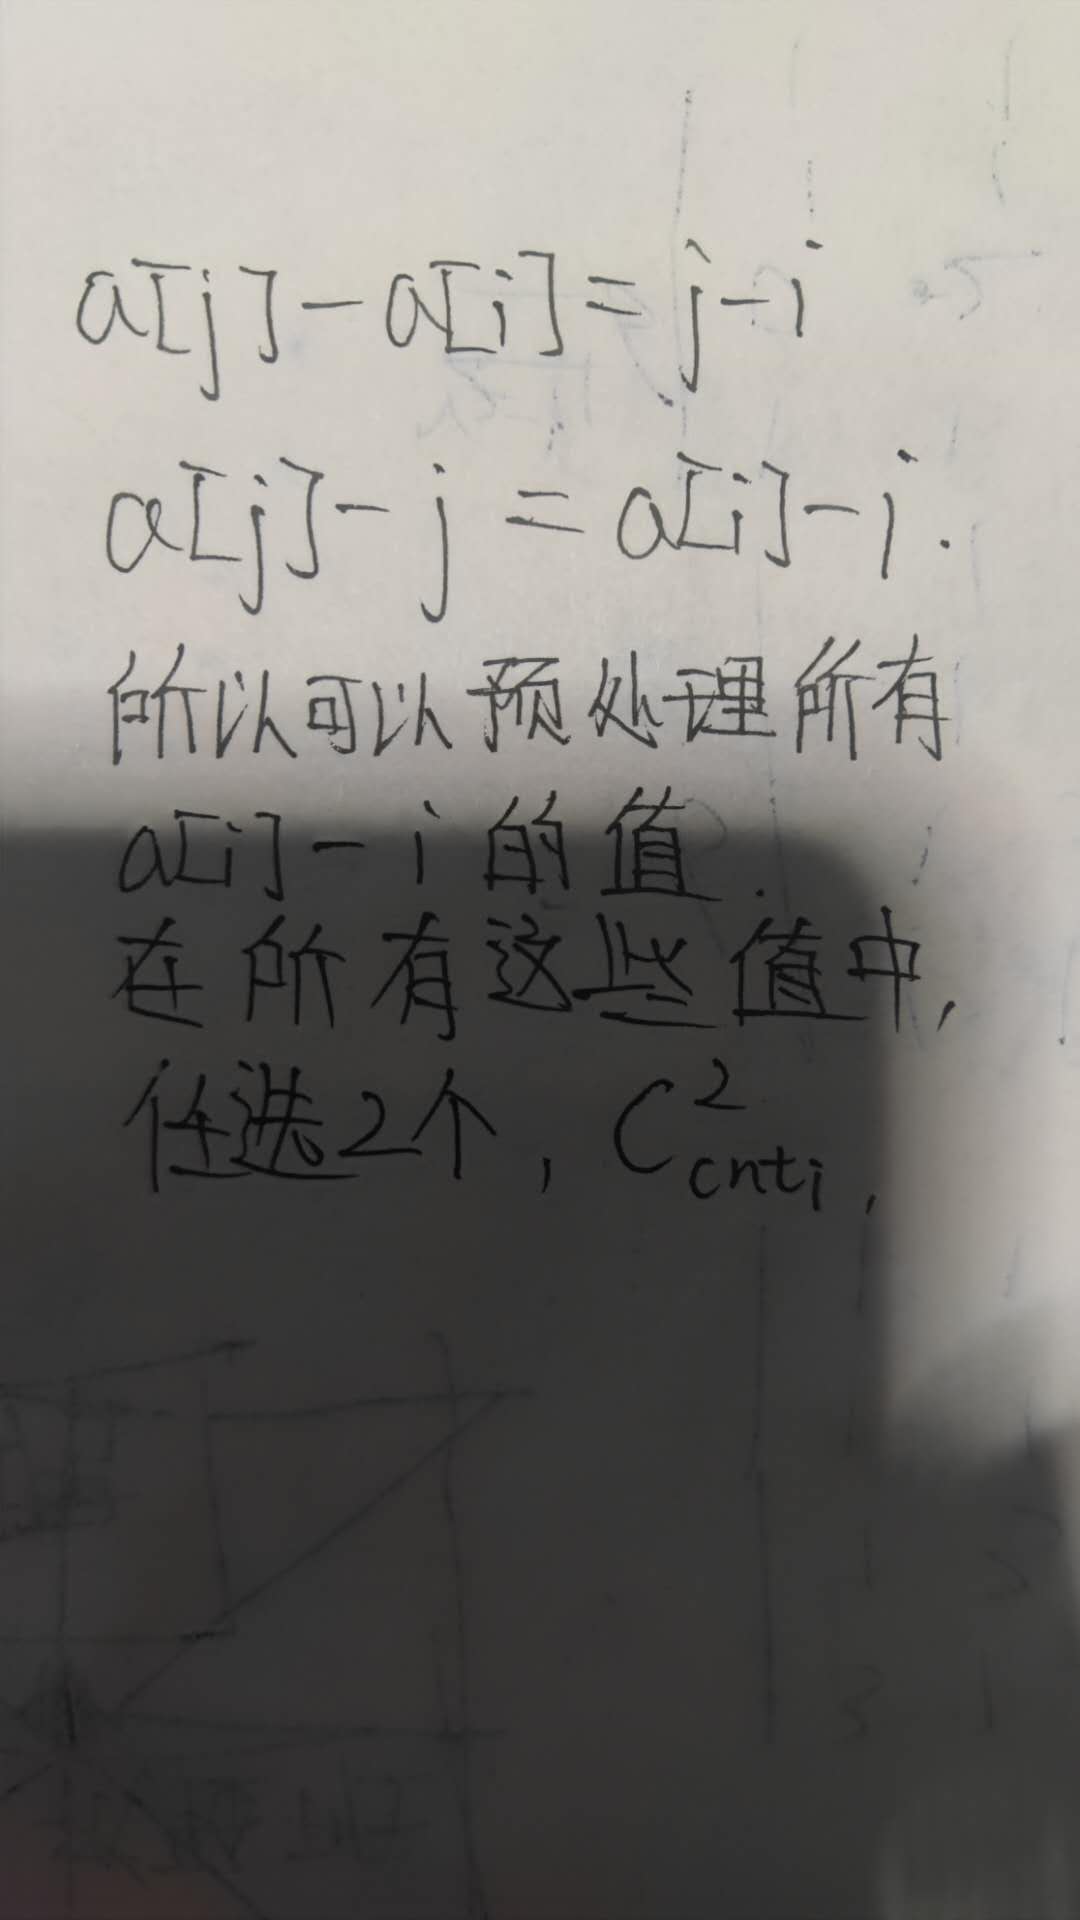 a[j]-a[i]=j-i
a[j]-j=a[i]-i.
所以可以预处理所有
a[i]-i的值.
在所有这些值中,
任选2个, C²cnti,